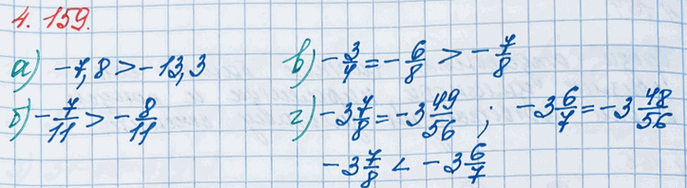 4.159.
а) -7,8 > -13,3
б) -7/11 > -8/11
в) -3/4 = -6/8 > -7/8
г) -3 7/8 = -3 49/56 ; -3 6/7 = -3 48/56
-3 7/8 < -3 6/7